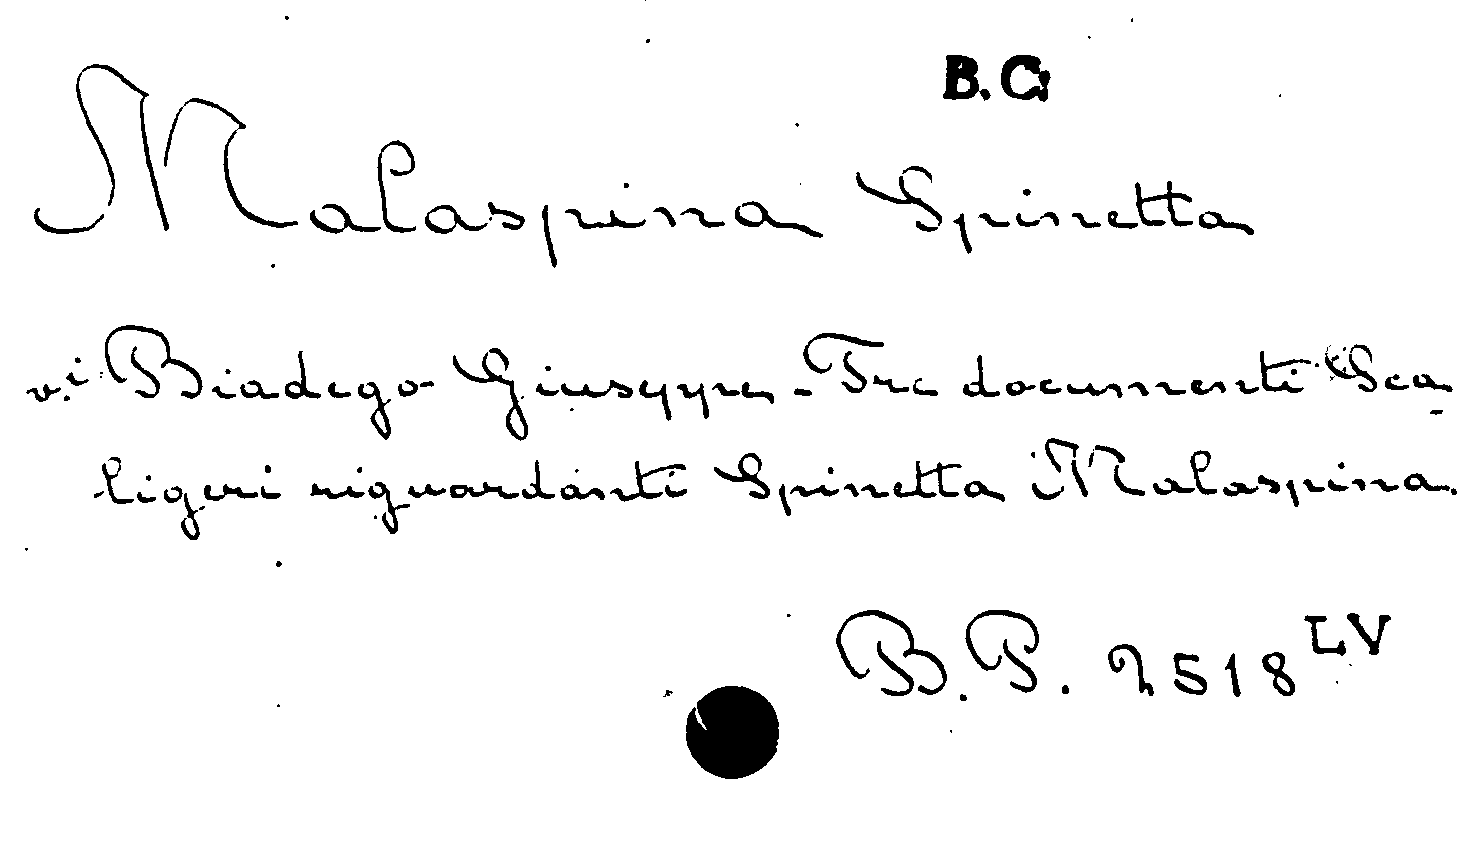 B.C.
Malaspina Spinetta
v.i Biadego Giuseppe - Tre documenti Sca-
ligeri riguardanti Spinetta Malaspina.
B.P. 2518 LV